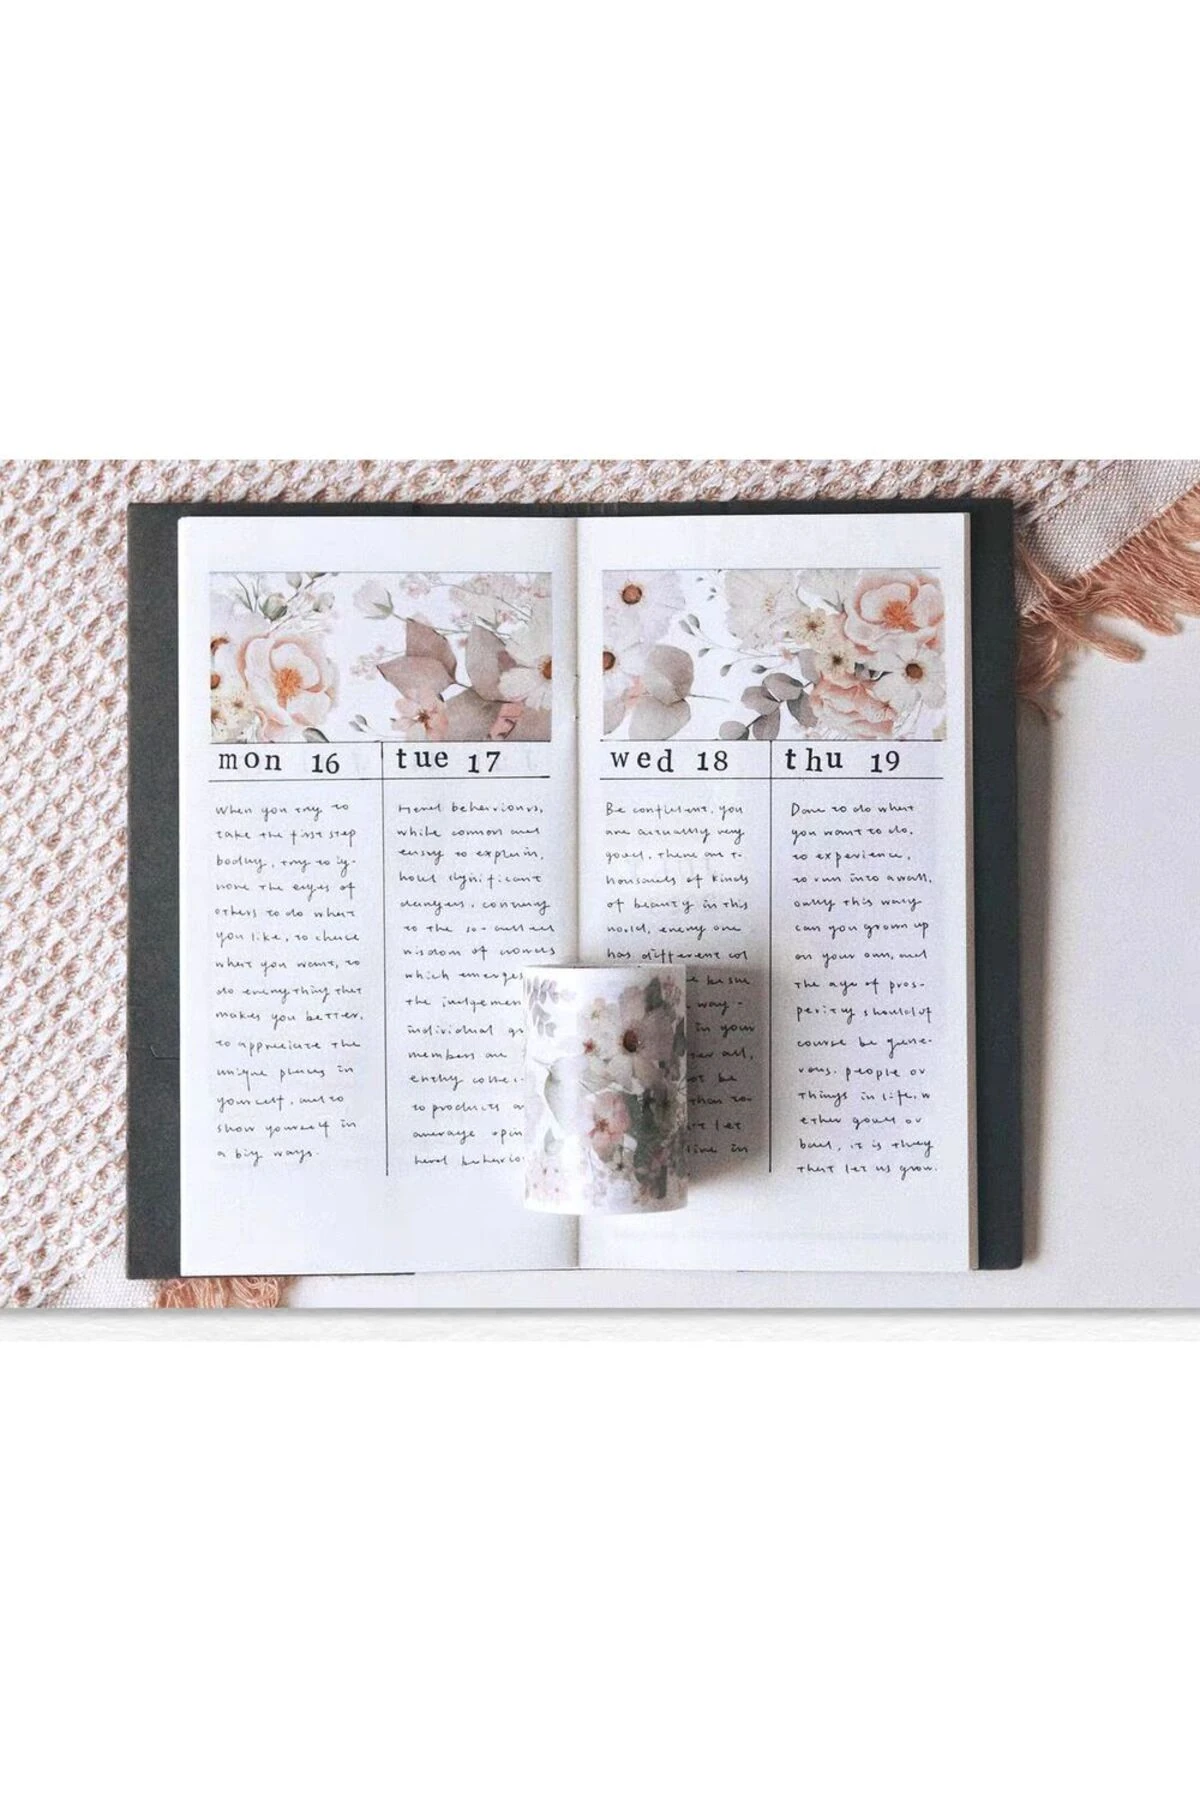 mon 16
When you try to
take the first step
bodlly, try to ig-
nore the eyes of
others to do what
you like, to choice
what you want, to
do everything that
makes you better,
to appreciate the
unique places in
yourself, and to
show yourself in
a big ways.
tue 17
Herd behaviours,
while common and
easy to explain,
hold significant
dangers, contrary
to the so-called
wisdom of crowds
which emerges
the judgemen
individual gr
members are
enthy collec-
to products a
average opin
herd behavio
wed 18
Be confident, you
are actually very
good, there are t-
housands of kinds
of beauty in this
world, every one
has different col
be sure
way -
in your
all,
not be
than to-
let
line in
thu 19
Dare to do what
you want to do,
to experience,
to run into a wall,
only this way
can you grown up
on your own, and
the age of pros-
perity should of
course be gene-
rous. people or
things in life, w
ether good or
bad, it is they
that let us grow.